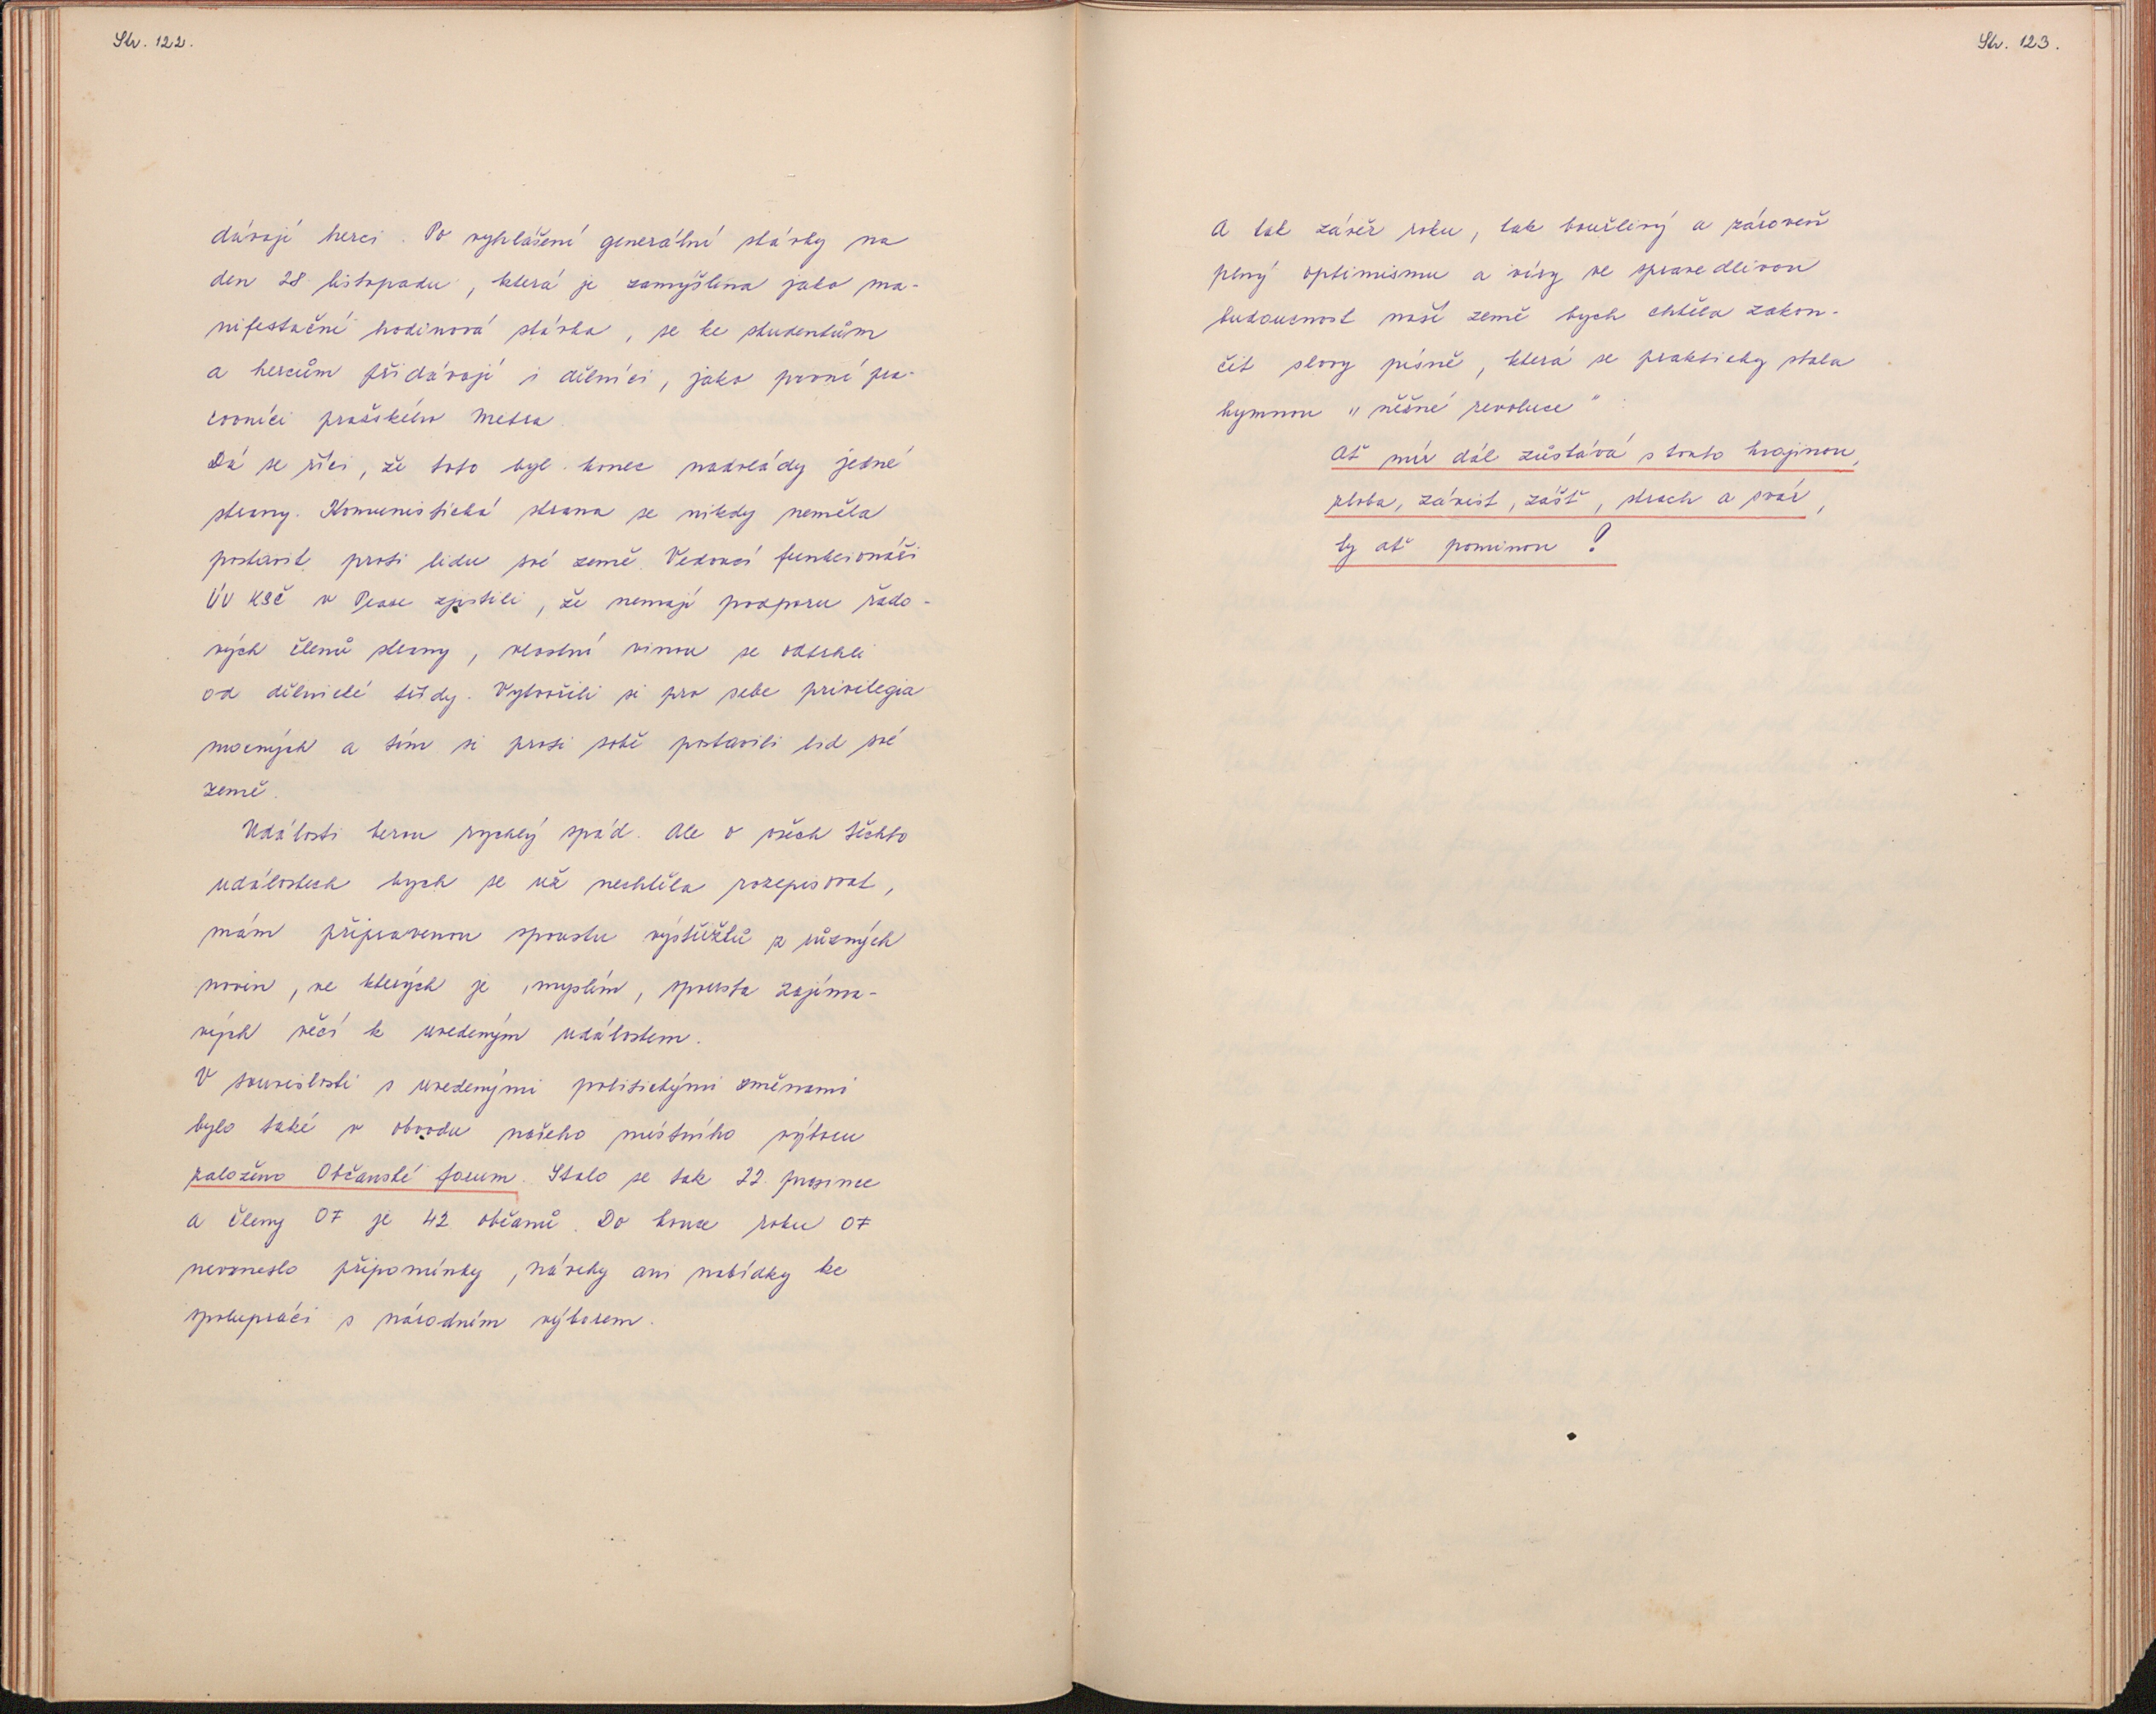 Str. 122.
dávají herci. Po vyhlášení generální stávky na
den 28. listopadu, která je zamýšlena jako ma-
nifestační hodinová stávka, se ke studentům
a hercům přidávají i dělníci, jako první pra-
covníci pražského Metra.
Dá se říci, že toto byl konec nadvlády jedné
strany. Komunistická strana se nikdy neměla
postavit proti lidu své země. Vedoucí funkcionáři
ÚV KSČ v Praze zjistili, že nemají podporu řado-
vých členů strany, vlastní vinou se odtrhli
od dělnické třídy. Vytvořili si pro sebe privilegia
mocných a tím si proti sobě postavili lid své
země.
Události berou rychlý spád. Ale o všech těchto
událostech bych se už nechtěla rozepisovat,
mám připravenou spoustu výstřižků z různých
novin, ve kterých je, myslím, spousta zajíma-
vých věcí k uvedeným událostem.
V souvislosti s uvedenými politickými změnami
bylo také v obvodu našeho místního výboru
založeno Občanské forum. Stalo se tak 22. prosince
a členy OF je 42 občanů. Do konce roku OF
nevzneslo připomínky, návrhy ani nabídky ke
spolupráci s národním výborem.
Str. 123.
A tak závěr roku, tak bouřlivý a zároveň
plný optimismu a víry ve spravedlivou
budoucnost naší země bych chtěla zakon-
čit slovy písně, která se prakticky stala
hymnou "něžné revoluce":
Ať mír dál zůstává s touto krajinou,
zloba, závist, zášť, strach a svár,
ty ať pominou!